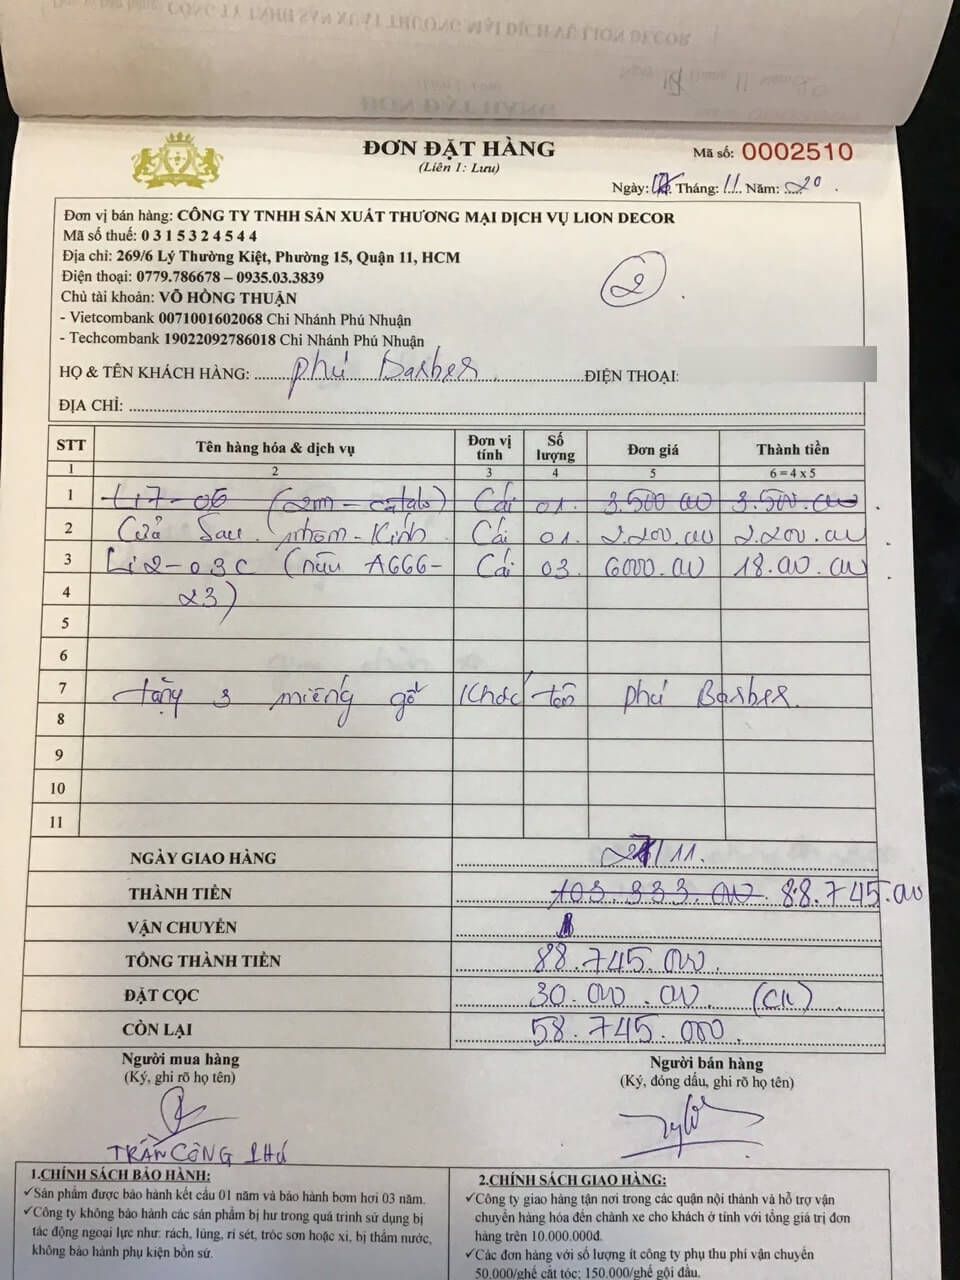 ĐƠN ĐẶT HÀNG
(Liên 1: Lưu)
Mã số: 0002510
Ngày: Tháng: 11 Năm: 20
Đơn vị bán hàng: CÔNG TY TNHH SẢN XUẤT THƯƠNG MẠI DỊCH VỤ LION DECOR
Mã số thuế: 0 3 1 5 3 2 4 5 4 4
Địa chỉ: 269/6 Lý Thường Kiệt, Phường 15, Quận 11, HCM
Điện thoại: 0779.786678 – 0935.03.3839
2
Chủ tài khoản: VÕ HỒNG THUẬN
- Vietcombank 0071001602068 Chi Nhánh Phú Nhuận
- Techcombank 19022092786018 Chi Nhánh Phú Nhuận
HỌ & TÊN KHÁCH HÀNG: Phú Barber ĐIỆN THOẠI:
ĐỊA CHỈ:
STT Tên hàng hóa & dịch vụ Đơn vị tính Số lượng Đơn giá Thành tiền
1 2 3 4 5 6 = 4 x 5
1 Li7-06 (2m - catalo) Cái 01 3.500.000 3.500.000
2 Cửa Sau nhôm - Kính Cái 01. 2.200.000 2.200.000
3 Li2-03C (nâu A666- Cái 03 6000.000 18.000.000
4 23)
5
6
7 tặng 3 miếng gỗ Khắc tên Phú Barber.
8
9
10
11
NGÀY GIAO HÀNG 27/11.
THÀNH TIỀN 103.333.000 88.745.000
VẬN CHUYỂN
TỔNG THÀNH TIỀN 88.745.000.
ĐẶT CỌC 30.000.000. (CK)
CÒN LẠI 58.745.000.
Người mua hàng Người bán hàng
(Ký, ghi rõ họ tên) (Ký, đóng dấu, ghi rõ họ tên)
TRẦN CÔNG PHÚ
1.CHÍNH SÁCH BẢO HÀNH:
✓Sản phẩm được bảo hành kết cấu 01 năm và bảo hành bơm hơi 03 năm.
✓Công ty không bảo hành các sản phẩm bị hư trong quá trình sử dụng bị
tác động ngoại lực như: rách, lủng, rỉ sét, tróc sơn hoặc xi, bị thấm nước,
không bảo hành phụ kiện bồn sứ.
2.CHÍNH SÁCH GIAO HÀNG:
✓Công ty giao hàng tận nơi trong các quận nội thành và hỗ trợ vận
chuyển hàng hóa đến chành xe cho khách ở tỉnh với tổng giá trị đơn
hàng trên 10.000.000đ.
✓Các đơn hàng với số lượng ít công ty phụ thu phí vận chuyển
50.000/ghế cắt tóc; 150.000/ghế gội đầu.